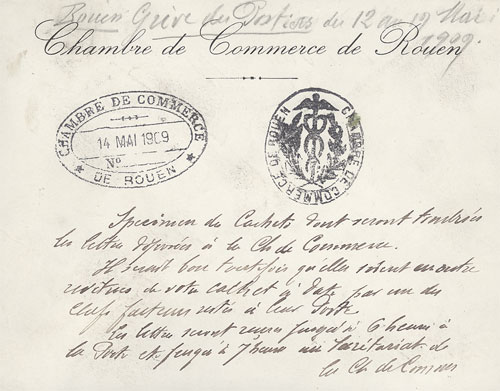 Rouen Grève des Postiers du 12 au 19 Mai
1909.
Chambre de Commerce de Rouen
CHAMBRE DE COMMERCE
14 MAI 1909
No
DE ROUEN
CHAMBRE DE COMMERCE DE ROUEN
Specimen des Cachets dont seront timbrées
les lettres déposées à la Ch de Commerce.
Il serait bon toutefois qu'elles soient en outre
revêtues de votre cachet à date par un des
restés à leur Poste
Les lettres seront reçues jusqu'à 6 heures à
la Poste et jusqu'à 7 heures au Secrétariat de
la Ch de Commerce